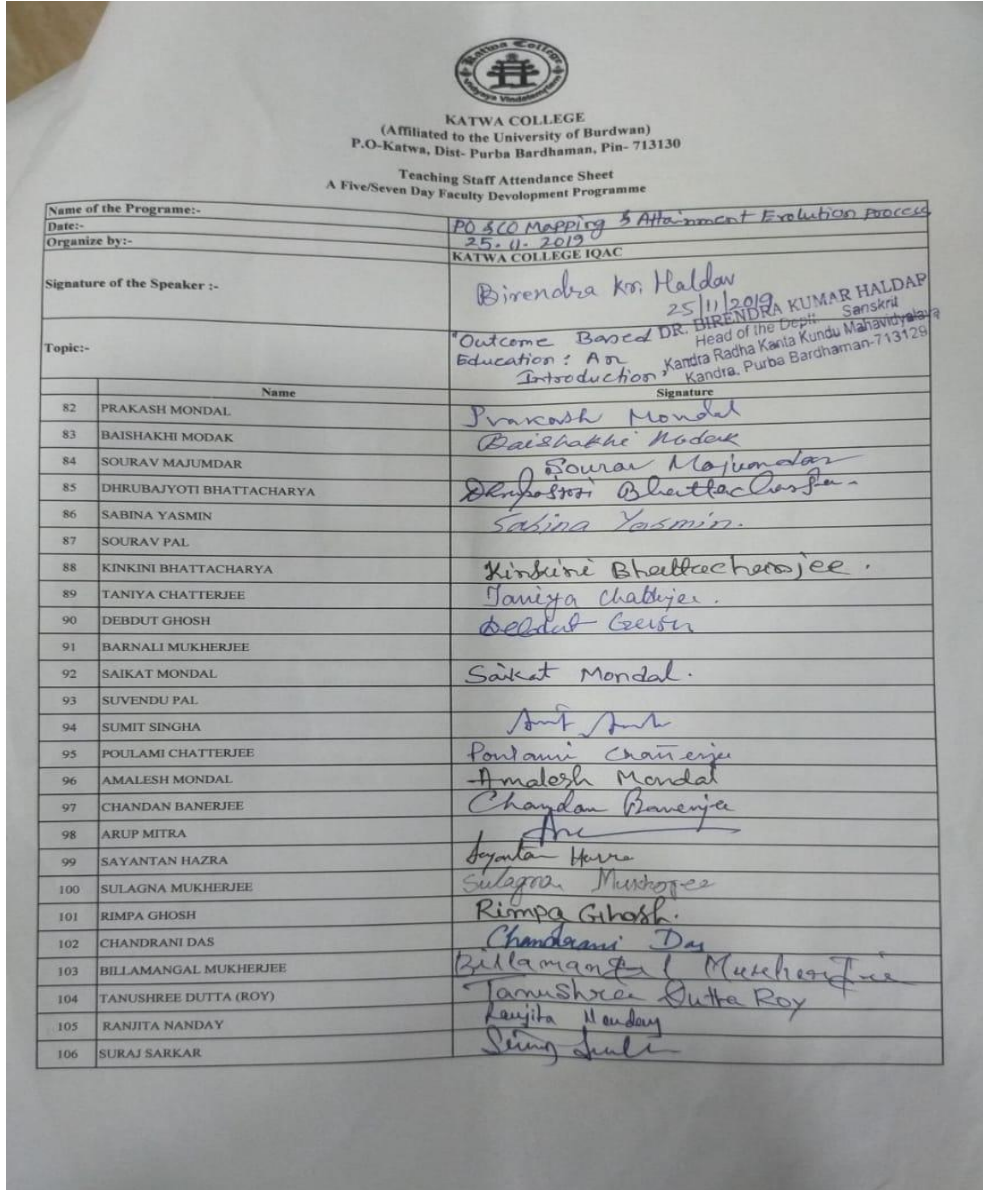 Katwa College
Vidyaya Vindatamritam
KATWA COLLEGE
(Affiliated to the University of Burdwan)
P.O-Katwa, Dist- Purba Bardhaman, Pin- 713130
Teaching Staff Attendance Sheet
A Five/Seven Day Faculty Devolopment Programme
Name of the Programe:- PO & CO Mapping & Attainment Evolution process
Date:- 25.11.2019
Organize by:- KATWA COLLEGE IQAC
Signature of the Speaker :- Birendra Kr. Haldar
25/11/2019
DR. BIRENDRA KUMAR HALDAR
Head of the Deptt. Sanskrit
Kandra Radha Kanta Kundu Mahavidyalaya
Kandra, Purba Bardhaman-713129
Topic:- "Outcome Based
Education : An
Introduction"
Name Signature
82 PRAKASH MONDAL Prakash Mondal
83 BAISHAKHI MODAK Baishakhi Modak
84 SOURAV MAJUMDAR Sourav Majumdar
85 DHRUBAJYOTI BHATTACHARYA Bhattacharya
86 SABINA YASMIN Sabina Yasmin.
87 SOURAV PAL
88 KINKINI BHATTACHARYA Kinkini Bhattacharjee.
89 TANIYA CHATTERJEE Taniya Chatterjee.
90 DEBDUT GHOSH Debdut Ghosh
91 BARNALI MUKHERJEE
92 SAIKAT MONDAL Saikat Mondal.
93 SUVENDU PAL
94 SUMIT SINGHA
95 POULAMI CHATTERJEE Poulami Chatterjee
96 AMALESH MONDAL Amalesh Mondal
97 CHANDAN BANERJEE Chandan Banerjee
98 ARUP MITRA
99 SAYANTAN HAZRA Sayantan Hazra
100 SULAGNA MUKHERJEE Sulagna Mukherjee
101 RIMPA GHOSH Rimpa Ghosh.
102 CHANDRANI DAS Chandrani Das
103 BILLAMANGAL MUKHERJEE Billamangal Mukherjee
104 TANUSHREE DUTTA (ROY) Tanushree Dutta Roy
105 RANJITA NANDAY Ranjita Nanday
106 SURAJ SARKAR